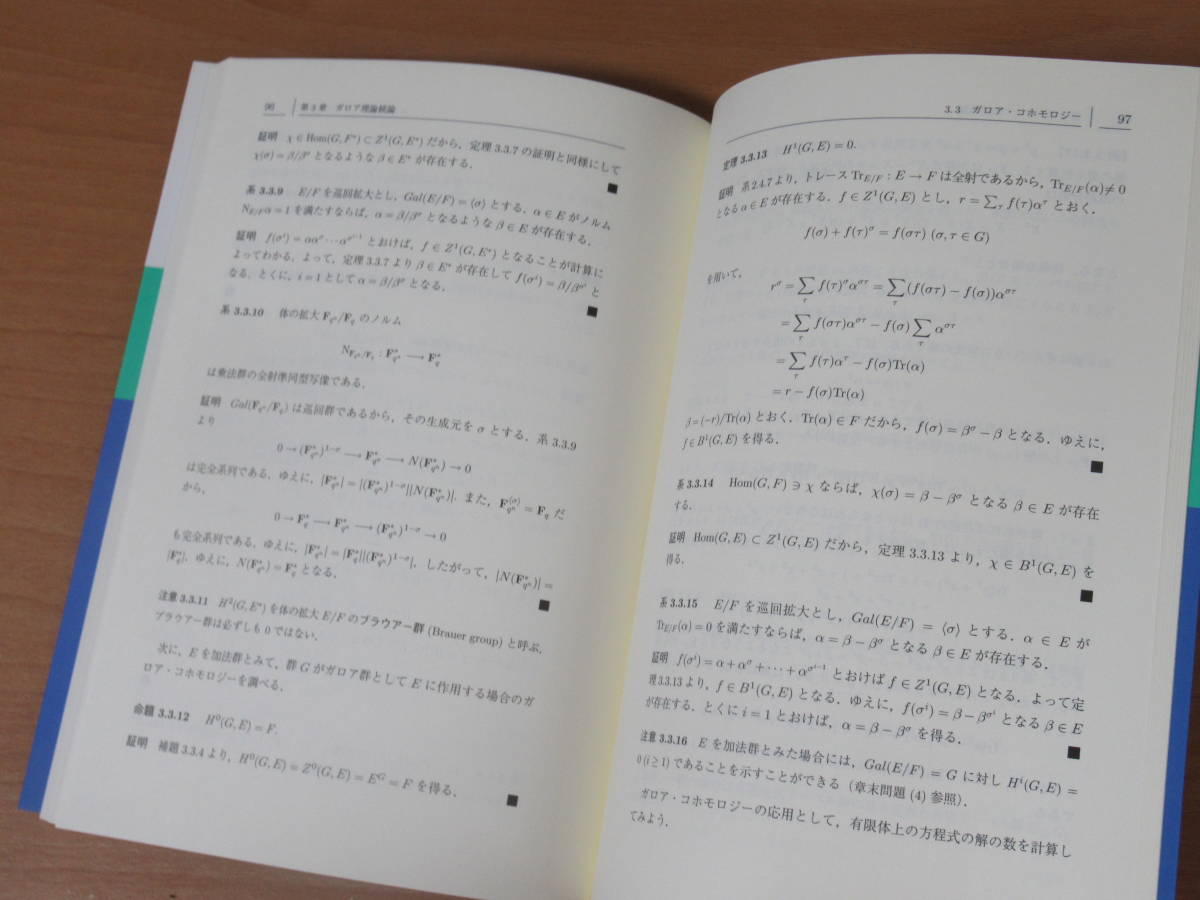 96 第3章 ガロア理論続論
証明 χ ∈ Hom(G, F*) ⊂ Z¹(G, E*) だから，定理 3.3.7 の証明と同様にして
χ(σ) = β/β^σ となるような β ∈ E* が存在する．■
系 3.3.9 E/F を巡回拡大とし，Gal(E/F) = ⟨σ⟩ とする．α ∈ E がノルム
N_{E/F}α = 1 を満たすならば，α = β/β^σ となるような β ∈ E が存在する．
証明 f(σ^i) = αα^σ ⋯ α^{σ^{i−1}} とおけば，f ∈ Z¹(G, E*) となることが計算に
よってわかる．よって，定理 3.3.7 より β ∈ E* が存在して f(σ^i) = β/β^{σ^i} と
なる．とくに，i = 1 として α = β/β^σ となる．■
系 3.3.10 体の拡大 F_{q^n}/F_q のノルム
N_{F_{q^n}/F_q} : F*_{q^n} ⟶ F*_q
は乗法群の全射準同型写像である．
証明 Gal(F_{q^n}/F_q) は巡回群であるから，その生成元を σ とする．系 3.3.9
より
0 → (F*_{q^n})^{1−σ} ⟶ F*_{q^n} ⟶ N(F*_{q^n}) → 0
は完全系列である．ゆえに，|F*_{q^n}| = |(F*_{q^n})^{1−σ}||N(F*_{q^n})|．また，F^{⟨σ⟩}_{q^n} = F_q だ
から，
0 → F*_q ⟶ F*_{q^n} ⟶ (F*_{q^n})^{1−σ} → 0
も完全系列である．ゆえに，|F*_{q^n}| = |F*_q||(F*_{q^n})^{1−σ}|，したがって，|N(F*_{q^n})| =
|F*_q|．ゆえに，N(F*_{q^n}) = F*_q となる．■
注意 3.3.11 H²(G, E*) を体の拡大 E/F のブラウアー群 (Brauer group) と呼ぶ．
ブラウアー群は必ずしも 0 ではない．
次に，E を加法群とみて，群 G がガロア群として E に作用する場合のガ
ロア・コホモロジーを調べる．
命題 3.3.12 H⁰(G, E) = F.
証明 補題 3.3.4 より，H⁰(G, E) = Z⁰(G, E) = E^G = F を得る．■
3.3 ガロア・コホモロジー 97
定理 3.3.13 H¹(G, E) = 0.
証明 系 2.4.7 より，トレース Tr_{E/F} : E → F は全射であるから，Tr_{E/F}(α) ≠ 0
となる α ∈ E が存在する．f ∈ Z¹(G, E) とし，r = ∑_τ f(τ)α^τ とおく．
f(σ) + f(τ)^σ = f(στ) (σ, τ ∈ G)
を用いて，
r^σ = ∑_τ f(τ)^σ α^{στ} = ∑_τ (f(στ) − f(σ))α^{στ}
= ∑_τ f(στ)α^{στ} − f(σ) ∑_τ α^{στ}
= ∑_τ f(τ)α^τ − f(σ)Tr(α)
= r − f(σ)Tr(α)
β = (−r)/Tr(α) とおく．Tr(α) ∈ F だから，f(σ) = β^σ − β となる．ゆえに，
f ∈ B¹(G, E) を得る．■
系 3.3.14 Hom(G, F) ∋ χ ならば，χ(σ) = β − β^σ となる β ∈ E が存在
する．
証明 Hom(G, E) ⊂ Z¹(G, E) だから，定理 3.3.13 より，χ ∈ B¹(G, E) を
得る．■
系 3.3.15 E/F を巡回拡大とし，Gal(E/F) = ⟨σ⟩ とする．α ∈ E が
Tr_{E/F}(α) = 0 を満たすならば，α = β − β^σ となる β ∈ E が存在する．
証明 f(σ^i) = α + α^σ + ⋯ + α^{σ^{i−1}} とおけば f ∈ Z¹(G, E) となる．よって定
理 3.3.13 より，f ∈ B¹(G, E) となる．ゆえに，f(σ^i) = β − β^{σ^i} となる β ∈ E
が存在する．とくに i = 1 とおけば，α = β − β^σ を得る．■
注意 3.3.16 E を加法群とみた場合には，Gal(E/F) = G に対し H^i(G, E) =
0 (i ≥ 1) であることを示すことができる（章末問題 (4) 参照）．
ガロア・コホモロジーの応用として，有限体上の方程式の解の数を計算し
てみよう．